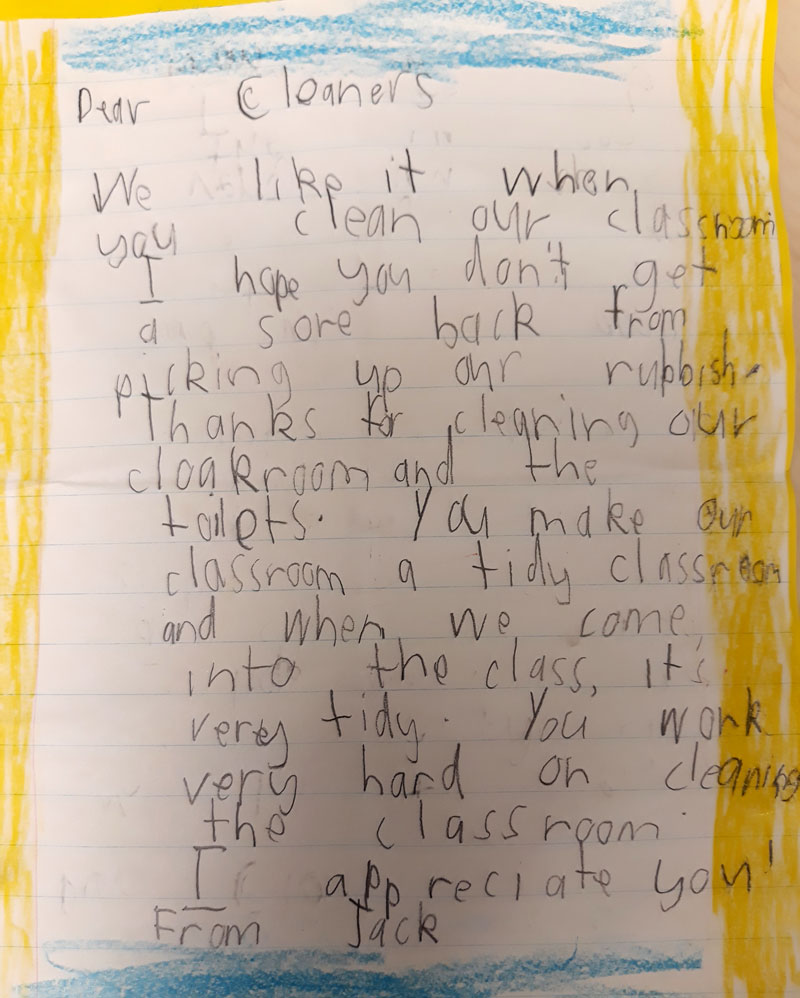 Dear Cleaners
We like it when
you clean our classroom
I hope you don't get
a sore back from
picking up our rubbish.
Thanks for cleaning our
cloakroom and the
toilets. You make our
classroom a tidy classroom
and when we come,
into the class, it's
very tidy. You work
very hard on cleaning
the classroom.
I appreciate you!
From Jack